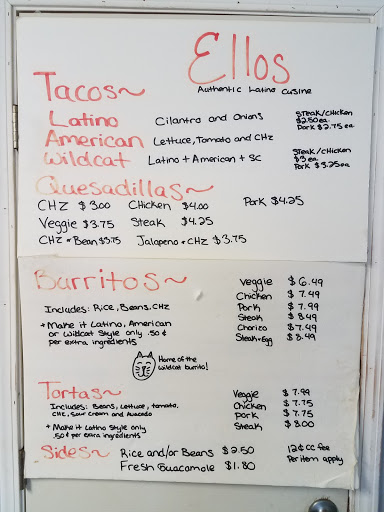 Ellos
Authentic Latino Cusine
Tacos~
Latino Cilantro and Onions Steak/Chicken $2.50 ea Pork $2.75 ea
American Lettuce, Tomato and CHZ
Wildcat Latino + American + SC Steak/Chicken $3 ea Pork $3.25 ea
Quesadillas~
CHZ $3.00 Chicken $4.00 Pork $4.25
Veggie $3.75 Steak $4.25
CHZ + Bean $3.75 Jalapeno + CHZ $3.75
Burritos~
Includes: Rice, Beans, CHZ
+ Make it Latino, American
or Wildcat Style only .50¢
per extra ingredients
Veggie $6.49
Chicken $7.49
Pork $7.99
Steak $8.49
Chorizo $7.49
Steak+Egg $8.49
Home of the
Wildcat burrito!
Tortas~
Includes: Beans, Lettuce, tomato,
CHZ, Sour cream and Avacado
+ Make it Latino Style only
.50¢ per extra ingredients
Veggie $7.99
Chicken $7.75
Pork $7.75
Steak $8.00
Sides~ Rice and/or Beans $2.50
Fresh Guacamole $1.80
12¢ CC fee
Per item apply